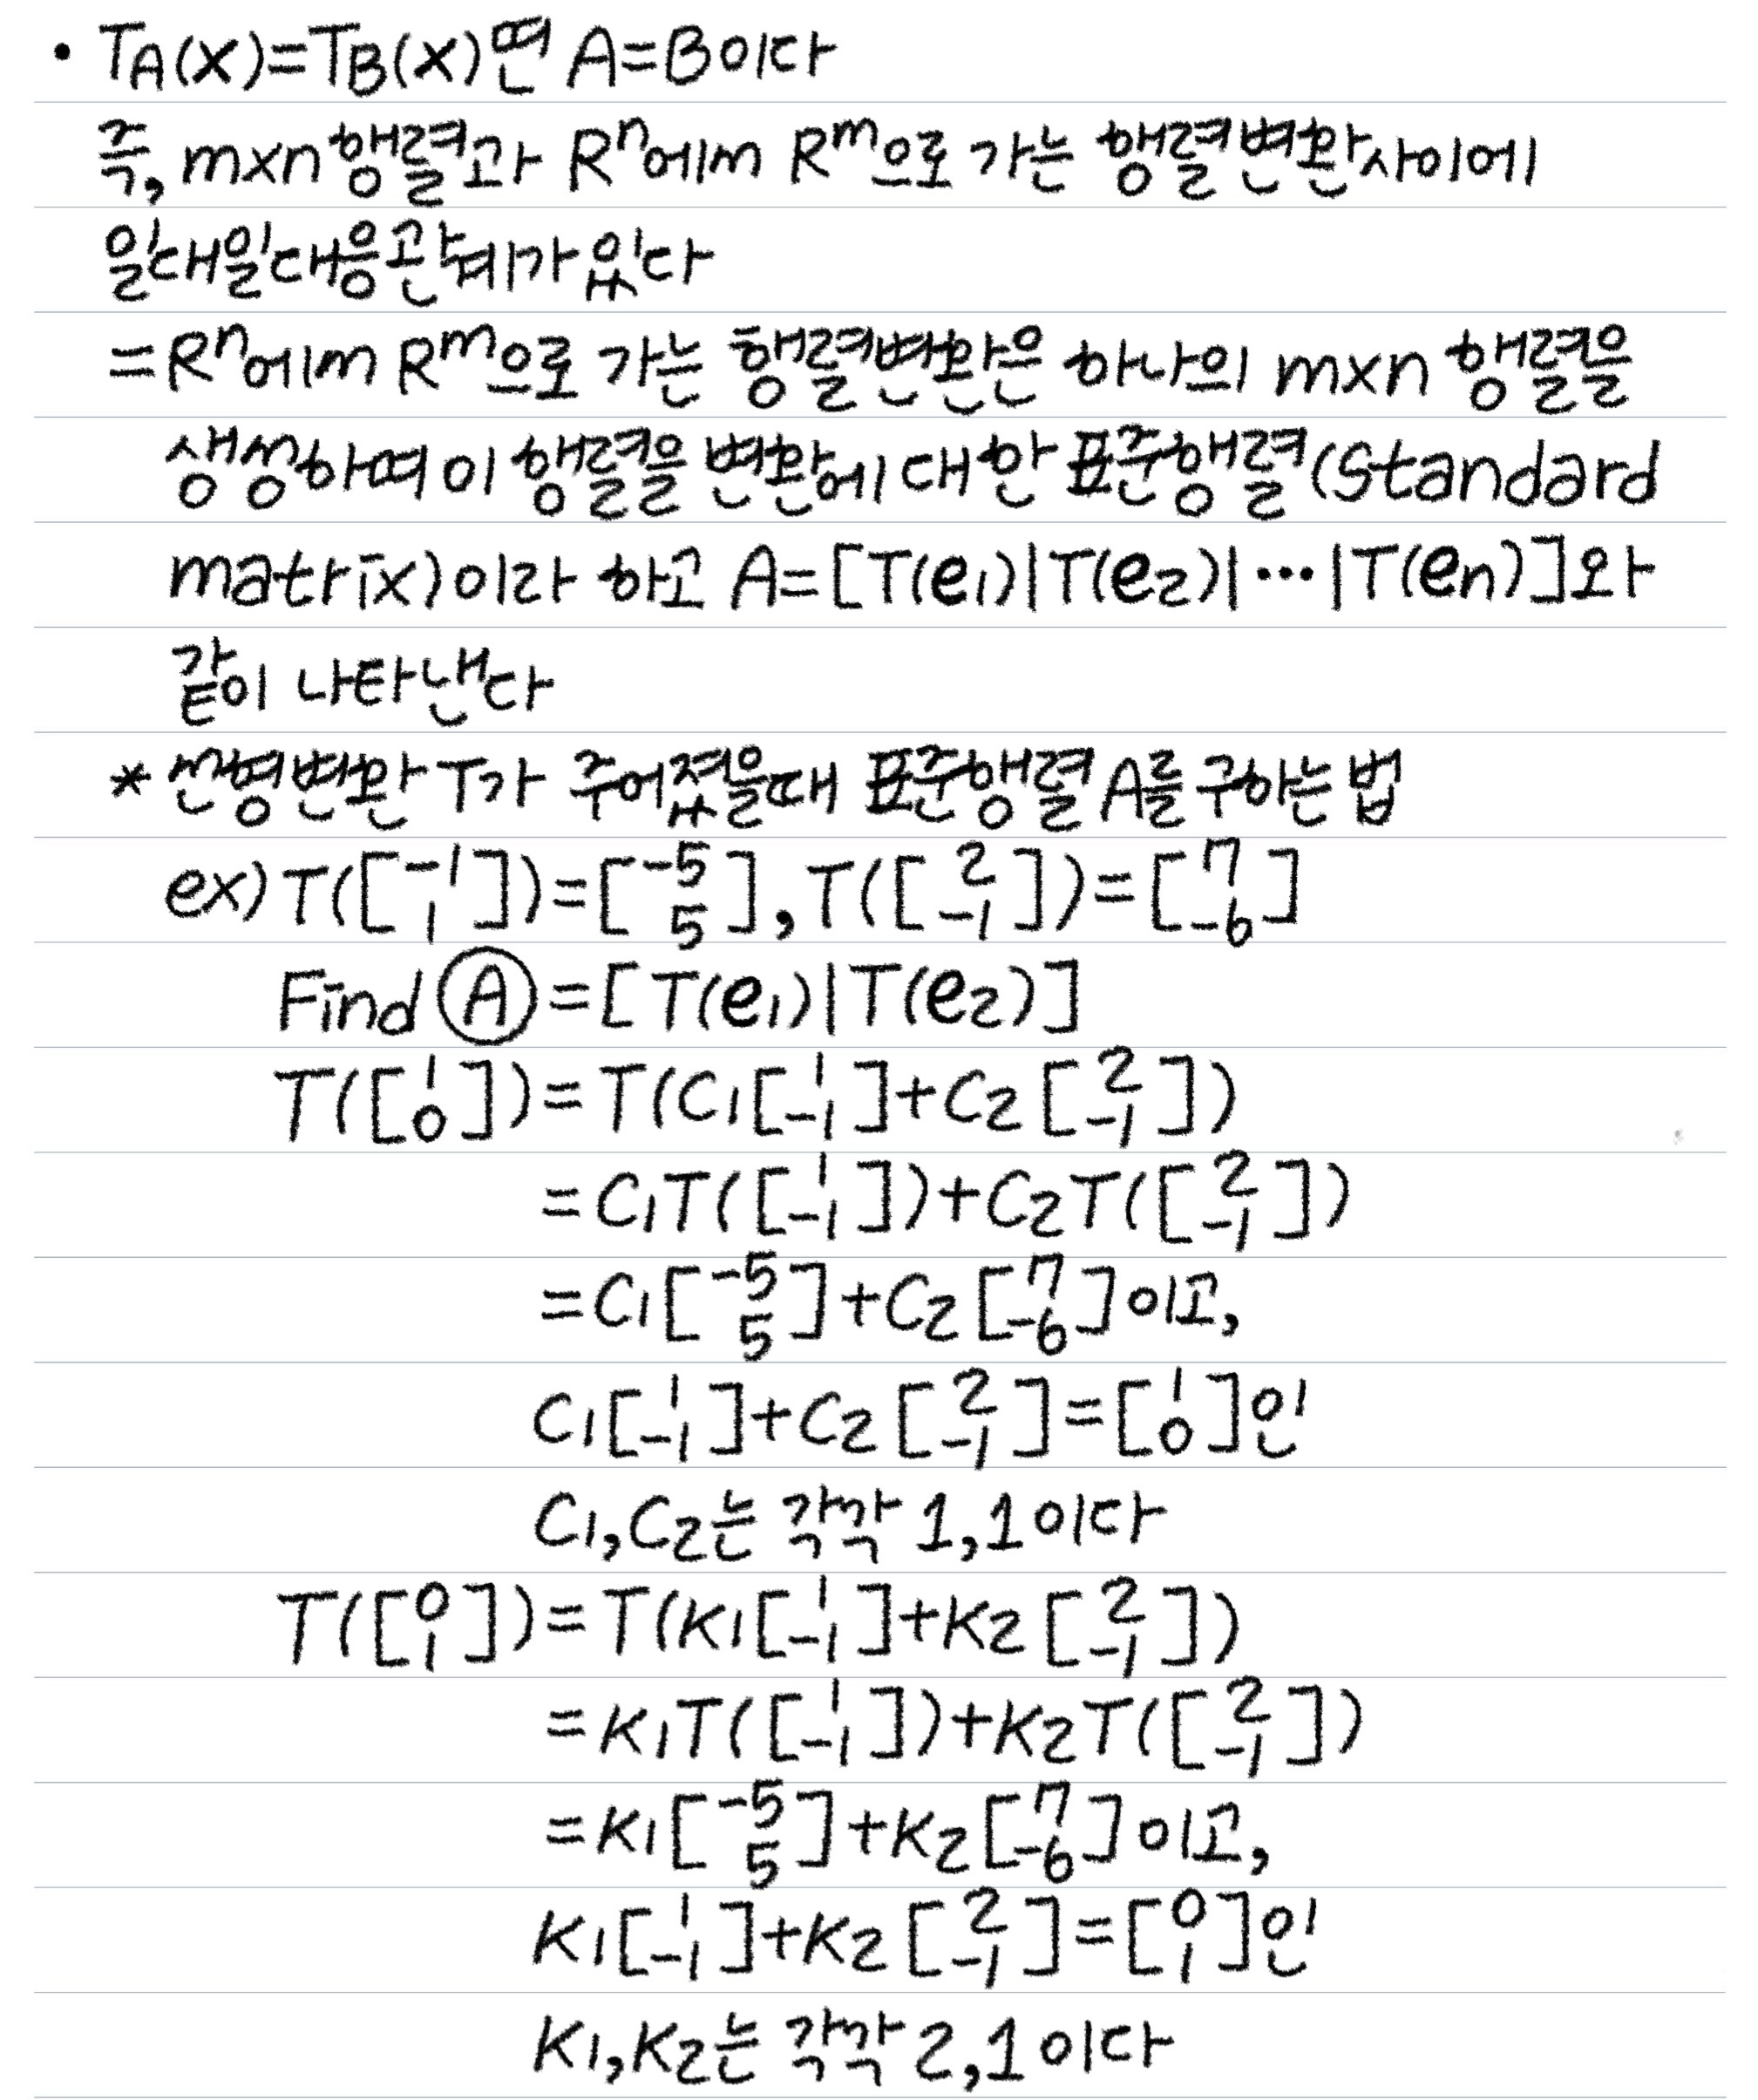 • TA(x)=TB(x)면 A=B이다
즉, mxn행렬과 Rⁿ에서 Rᵐ으로 가는 행렬변환사이에
일대일대응관계가 있다
=Rⁿ에서 Rᵐ으로 가는 행렬변환은 하나의 mxn 행렬을
생성하여 이 행렬을 변환에 대한 표준행렬(standard
matrix)이라 하고 A=[T(e1)|T(e2)|⋯|T(en)]와
같이 나타낸다
* 선형변환 T가 주어졌을때 표준행렬 A를 구하는 법
ex) T([-1 1])=[-5 5], T([2 -1])=[7 -6]
Find Ⓐ=[T(e1)|T(e2)]
T([1 0])=T(C1[1 -1]+C2[2 -1])
=C1T([1 -1])+C2T([2 -1])
=C1[-5 5]+C2[7 -6]이고,
C1[1 -1]+C2[2 -1]=[1 0]인
C1,C2는 각각 1,1이다
T([0 1])=T(K1[1 -1]+K2[2 -1])
=K1T([1 -1])+K2T([2 -1])
=K1[-5 5]+K2[7 -6]이고,
K1[1 -1]+K2[2 -1]=[0 1]인
K1,K2는 각각 2,1이다